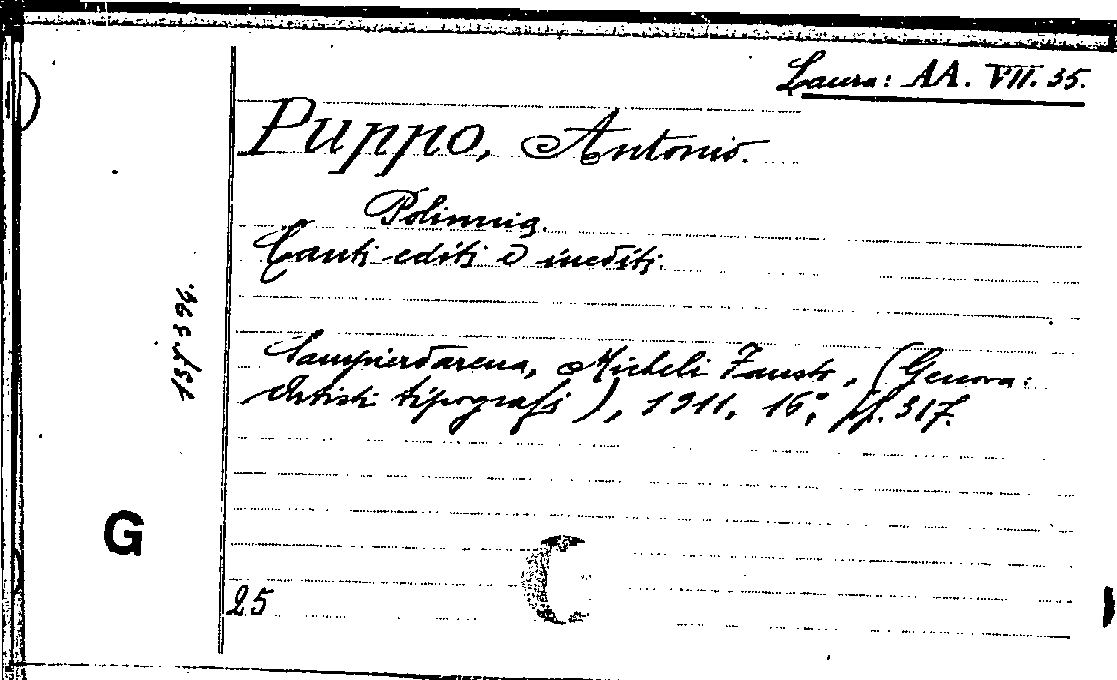 Laura: AA. VII. 35.
Puppo, Antonio.
Polimnia.
Canti editi e inediti.
Sampierdarena, Micheli Fausto, (Genova:
Artisti tipografi), 1911, 16°, pp. 317.
G
25